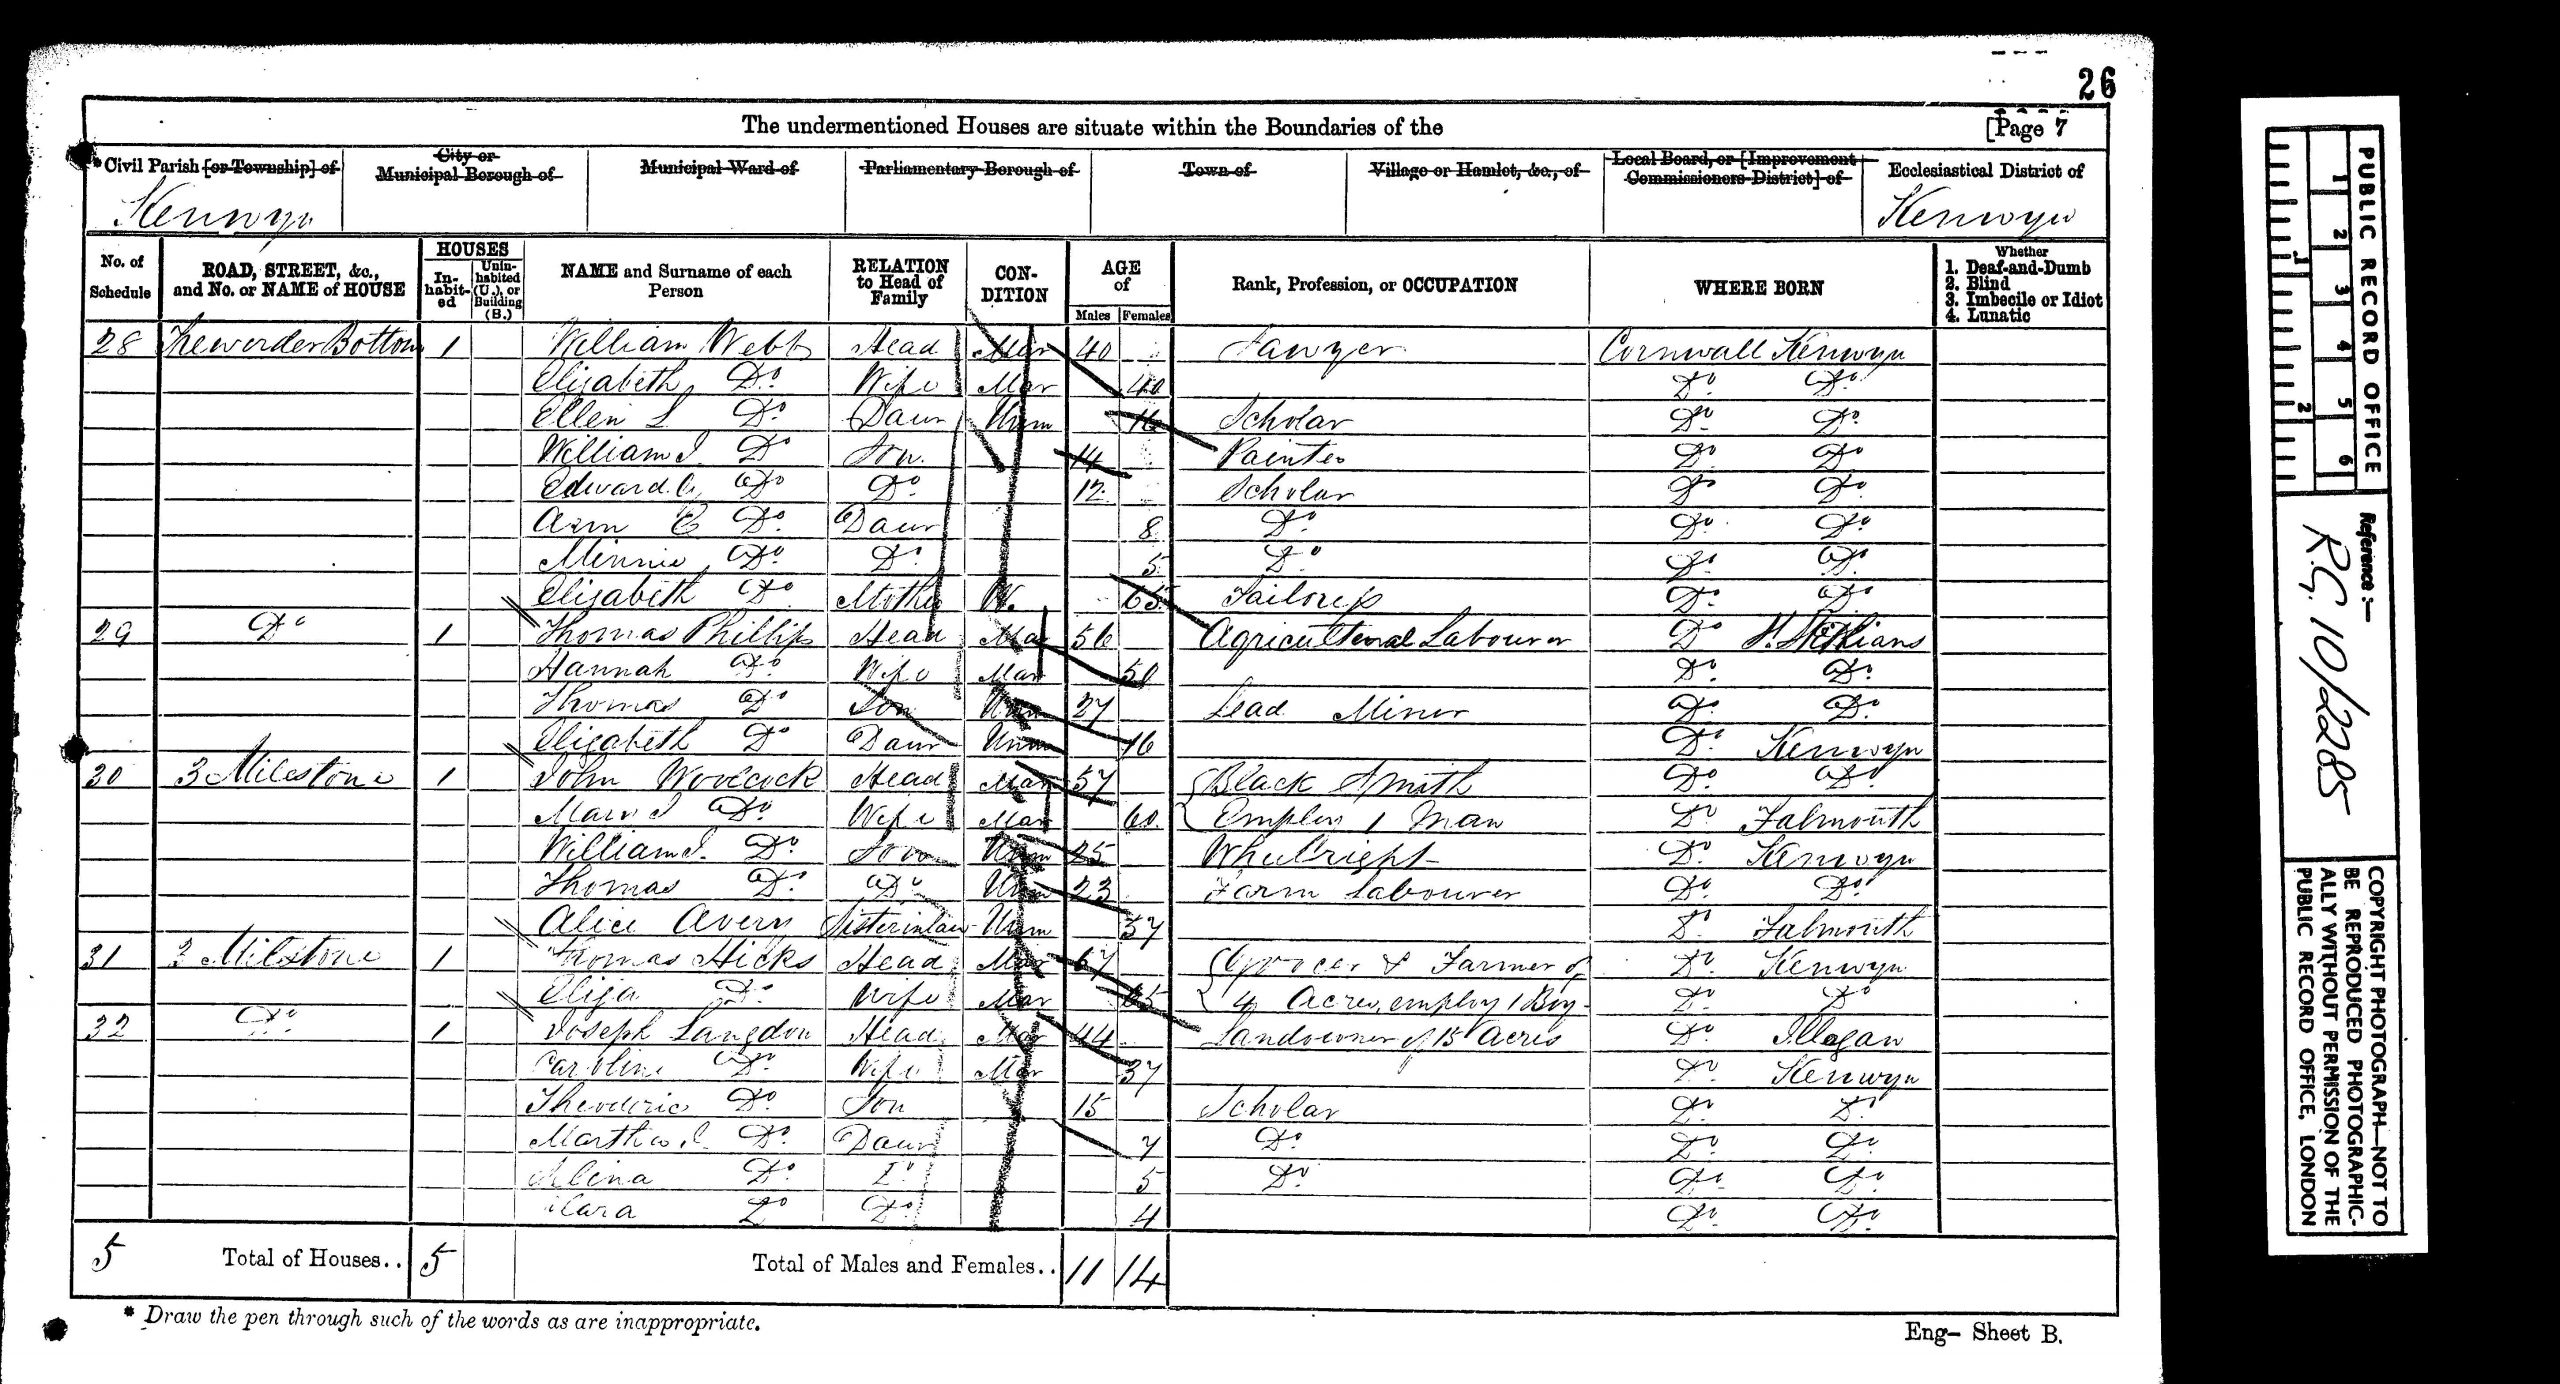 26
The undermentioned Houses are situate within the Boundaries of the [Page 7
* Civil Parish [or Township] of City or Municipal Borough of Municipal Ward of Parliamentary Borough of Town of Village or Hamlet, &c., of Local Board, or [Improvement Commissioners District] of Ecclesiastical District of
Kenwyn Kenwyn
No. of Schedule ROAD, STREET, &c., and No. or NAME of HOUSE HOUSES Inhabited Uninhabited (U.), or Building (B.) NAME and Surname of each Person RELATION to Head of Family CONDITION AGE of Males Females Rank, Profession, or OCCUPATION WHERE BORN Whether 1. Deaf-and-Dumb 2. Blind 3. Imbecile or Idiot 4. Lunatic
28 Bottom 1 William Webb Head Mar 40 Sawyer Cornwall Kenwyn
Elizabeth Do Wife Mar 40 Do Do
Ellen L Do Daur Unm 16 Scholar Do Do
William J. Do Son 14 Painter Do Do
Edward Do Do 12 Scholar Do Do
Ann E Do Daur 8 Do Do Do
Minnie Do Do 5 Do Do Do
Elizabeth Do Mother W. 65 Do Do
29 Do 1 Thomas Phillips Head Mar 56 Agricultural Labourer Do St. Stithians
Hannah Do Wife Mar Do Do
Thomas Do Son Unm 27 Lead Miner Do Do
Elizabeth Do Daur Unm 16 Do Kenwyn
30 3 Milestone 1 John Woolcock Head Mar 57 Black Smith Do Do
Mary J Do Wife Mar 60 Employ 1 Man Do Falmouth
William J. Do Son Unm 25 Do Kenwyn
Thomas Do Do Unm 23 Farm Labourer Do Do
Alice Avery Sisterinlaw Unm 37 Do Falmouth
31 3 Milestone 1 Thomas Hicks Head Mar 67 Grocer & Farmer of Do Kenwyn
Eliza Do Wife Mar 65 4 Acres, employ 1 Boy Do Do
32 Do 1 Joseph Langdon Head Mar 44 Landowner of 15 Acres Do Illogan
Caroline Do Wife Mar 37 Do Kenwyn
Do Son 15 Scholar Do Do
Martha J. Do Daur 7 Do Do Do
Do Do 5 Do Do Do
Clara Do Do 4 Do Do
5 Total of Houses.. 5 Total of Males and Females.. 11 14
* Draw the pen through such of the words as are inappropriate.
Eng- Sheet B.
PUBLIC RECORD OFFICE
1 2 3 4 5 6
1 2
Reference :-
R.G. 10/2285
COPYRIGHT PHOTOGRAPH—NOT TO
BE REPRODUCED PHOTOGRAPHIC-
ALLY WITHOUT PERMISSION OF THE
PUBLIC RECORD OFFICE, LONDON